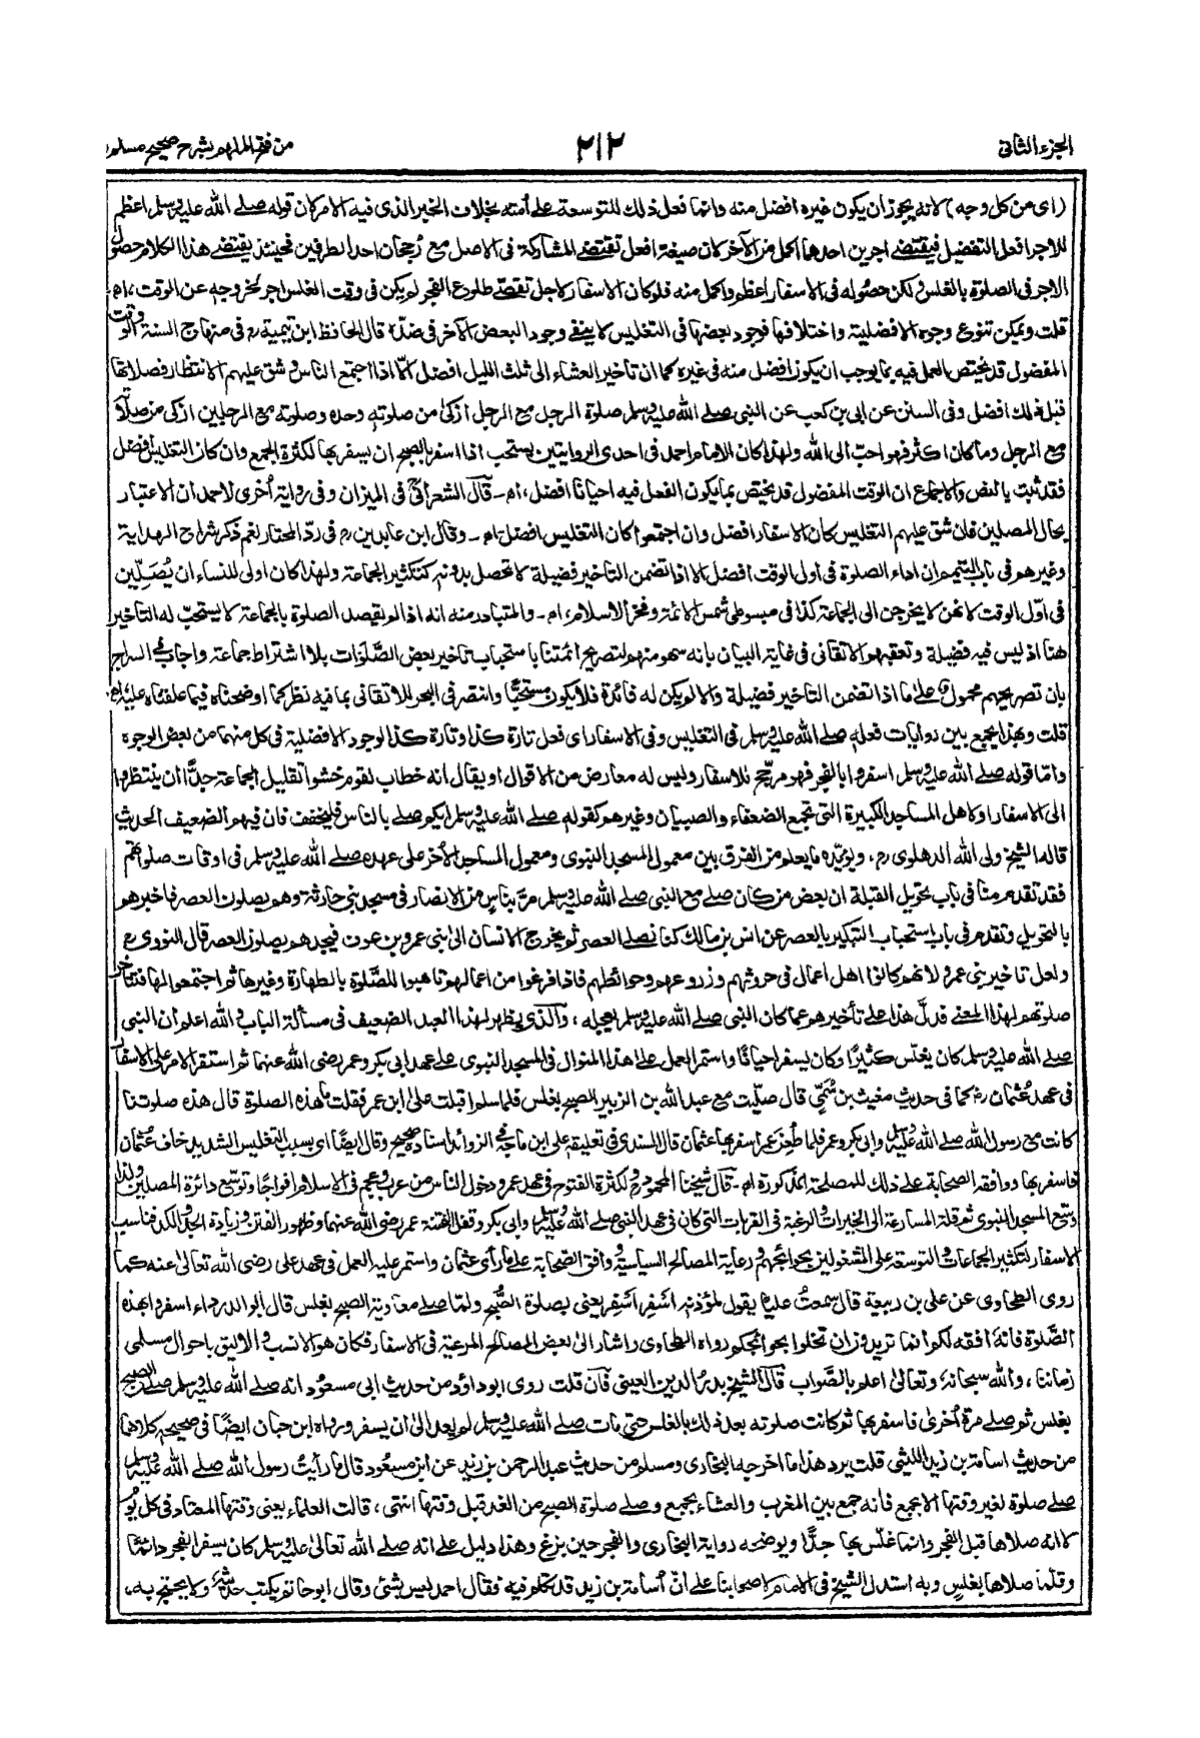 الجزء الثانى ٢١٢ من فتح الملهم بشرح صحيح مسلم
(اى من كل وجه) لانه يجوز ان يكون غيره افضل منه وانما فعل ذلك للتوسعة على أمته بخلاف الخبر الذى فيه الامر كان قوله صلى الله عليه وسلم اعظم
للاجر افعل التفضيل فيقتضى اجرين احدهما اكمل من الآخر كان صيغة افعل تقتضى المشاركة فى الاصل مع رُجحان احد الطرفين فحينئذ يقتضى هذا الكلام حصول
الاجر فى الصلوة بالغلس ولكن حصوله فى الاسفار اعظم واكمل منه فلو كان الاسفار لاجل تقصى طلوع الفجر لم يكن فى وقت الغلس اجر لخروجه عن الوقت، اه
قلت ويمكن تنوع وجوه الافضلية واختلافها فوجود بعضها فى التغليس لا ينفى وجود البعض الآخر فى ضده قال الحافظ ابن تيمية رم فى منهاج السنة الوقت
المفضول قد يختص العمل فيه بما يوجب ان يكون افضل منه فى غيره كما ان تأخير العشاء الى ثلث الليل افضل الّا اذا اجتمع الناس وشق عليهم الانتظار فصلاتها
قبل ذلك افضل وفى السنن عن ابى بن كعب عن النبى صلى الله عليه وسلم صلوة الرجل مع الرجل ازكىٰ من صلوته وحده وصلوته مع الرجلين ازكى من صلاته
مع الرجل وما كان اكثر فهو احبّ الى الله ولهذا كان الامام احمد فى احدى الروايتين يستحب اذا اسفر بالصبح ان يسفر بها لكثرة الجمع وان كان التغليس افضل
فقد ثبت بالنص والاجماع ان الوقت المفضول قد يختص بما يكون الفعل فيه احيانًا افضل، اه ـ قال الشعرانىّ فى الميزان وفى رواية أخرى لاحمد ان الاعتبار
بحال المصلين فان شق عليهم التغليس كان الاسفار افضل وان اجتمعوا كان التغليس افضل اه ـ وقال ابن عابدين رم فى ردّ المحتار نعم ذكر شراح الهداية
وغيرهم فى باب التيمم ان اداء الصلوة فى اول الوقت افضل الا اذا تضمن التاخير فضيلة لا تحصل بدونه كتكثير الجماعة ولهذا كان اولى للنساء ان يُصَلِّين
فى اوّل الوقت لانهن لا يخرجن الى الجماعة كذا فى مبسوطى شمس الائمة وفخر الاسلام، اه ـ والمتبادر منه انه اذا لم يقصد الصلوة بالجماعة لا يستحبّ له التاخير
هنا اذ ليس فيه فضيلة وتعقبهم الاتقانى فى غاية البيان بانه سهو منهم لتصريح ائمتنا باستحباب تاخير بعض الصَّلَوات بلا اشتراط جماعة واجاب فى السراج
بان تصريحهم محمول على ما اذا تضمن التاخير فضيلة والا لم يكن له فائدة فلا يكون مستحبًّا وانتصر فى البحر للاتقانى بما فيه نظر كما اوضحناه فيما علقناه عليه اه
قلت وبهذا يجمع بين روايات فعله صلى الله عليه وسلم فى التغليس وفى الاسفار اى فعل تارة كذا وتارة كذا لوجود الافضلية فى كل منهما من بعض الوجوه
واما قوله صلى الله عليه وسلم اسفروا بالفجر فهو مرجّح للاسفار وليس له معارض من الاقوال او يقال انه خطاب لقوم خشوا تقليل الجماعة جدًّا ان ينتظروا
الى الاسفار او كاهل المساجد الكبيرة التى تجمع الضعفاء والصبيان وغيرهم كقوله صلى الله عليه وسلم ايكم صلى بالناس فليخفف فان فيهم الضعيف الحديث
قاله الشيخ ولى الله الدهلوى رم، ويؤيّده ما يعلم من الفرق بين معمول المسجد النبوى ومعمول المساجد الأخر على عهده صلى الله عليه وسلم فى اوقات صلواتهم
فقد تقدم منّا فى باب تحويل القبلة ان بعض من كان صلى مع النبى صلى الله عليه وسلم مرّ بناسٍ من الانصار فى مسجد بنى حارثة وهم يصلون العصر فاخبرهم
بالتحويل وتقدم فى باب استحباب التبكير بالعصر عن انس بن مالك كنا نصلى العصر ثم يخرج الانسان الى بنى عمرو بن عوف فيجدهم يصلون العصر قال النووى رح
ولعل تاخير بنى عمرو لانهم كانوا اهل اعمال فى حروثهم وزروعهم وحوائطهم فاذا فرغوا من اعمالهم تاهبوا للصَّلوة بالطهارة وغيرها ثم اجتمعوا لها فتتاخر
صلوتهم لهذا المعنى فدلَّ هذا على تأخيرهم عما كان النبى صلى الله عليه وسلم يعجله، والذى يظهر لهذا العبد الضعيف فى مسألة الباب والله اعلم ان النبى
صلى الله عليه وسلم كان يغلّس كثيرًا وكان يسفر احيانًا واستمر العمل على هذا المنوال فى المسجد النبوى على عهد ابى بكر وعمر رضى الله عنهما ثم استقر الامر على الاسفار
فى عهد عُثمان رض كما فى حديث مغيث بن سُمَىّ قال صلّيت مع عبد الله بن الزبير الصبح بغلس فلما سلم اقبلت على ابن عمر فقلت ما هذه الصلوة قال هذه صلوتنا
كانت مع رسول الله صلى الله عليه وسلم وابى بكر وعمر فلما طُعِن عمر اسفر بها عثمان قال السندى فى تعليقه على ابن ماجه فى الزوائد اسناده صحيح وقال ايضًا اى بسبب التغليس الشديد خاف عثمان
فاسفر بها ووافقه الصحابة على ذلك للمصلحة المذكورة اه ـ قال شيخنا المحمود رح لكثرة الفتوح فى عهد عمر ودخول الناس من عرب وعجم فى الاسلام افواجًا وتوسّع دائرة المصلين ولذا
وسّع المسجد النبوى ثم قلة المسارعة الى الخيرات والرغبة فى القربات التى كان فى عهد النبى صلى الله عليه وسلم وابى بكر وقفل الفتنة عمر رضى الله عنهما وظهور الفتن وزيادة الجد والكد فناسب
الاسفار لتكثير الجماعات والتوسعة على المشغولين بحوائجهم ورعاية المصالح السياسية وافق الصحابة على ما رأى عثمان واستمر عليه العمل فى عهد على رضى الله تعالىٰ عنه كما
روى الطحاوى عن على بن ربيعة قال سمعتُ عليًا يقول لمؤذنه اَسْفِر اَسْفِر يعنى بصلوة الصُّبح ولمّا صلى معاوية الصبح بغلس قال ابو الدرداء اسفروا بهذه
الصَّلوة فانهٗ افقه لكم انما تريدون ان تخلوا بحوائجكم رواه الطحاوى واشار الىٰ بعض المصالح المرعيّة فى الاسفار فكان هو الانسب والاليق باحوال مسلمى
زماننا، والله سبحانهٗ وتعالىٰ اعلم بالصَّواب قال الشيخ بدرُ الدين العينى فان قلت روى ابو داؤد من حديث ابى مسعُود انه صلى الله عليه وسلم صلى الصبح
بغلس ثم صلى مرة اُخرىٰ فاسفر بها ثم كانت صلوته بعد ذلك بالغلس حتى مات صلى الله عليه وسلم لم يعد الى ان يسفر ورواه ابن حبان ايضًا فى صحيحه كلاهما
من حديث اسامة بن زيد الليثى قلت يرد هذا ما اخرجه البخارى ومسلم من حديث عبد الرحمن بن زيد عن ابن مسعود قال ما رأيتُ رسول الله صلى الله عليه وسلم
صلى صلوة لغير وقتها الا بجمع فانه جمع بين المغرب والعشاء بجمع وصلى صلوة الصبح من الغد قبل وقتها انتهى، قالت العلماء يعنى وقتها المعتاد فى كل يوم
لا انه صلاها قبل الفجر وانما غلّس بها جدًّا ويوضحه رواية البخارى والفجر حين بزغ وهذا دليل على انه صلى الله تعالىٰ عليه وسلم كان يسفر بالفجر دائمًا
وقلّما صلاها بغلسٍ وبه استدل الشيخ فى الامام لاصحابنا على انّ اُسامة بن زيد قد تكلم فيه فقال احمد ليس بشئ وقال ابو حاتم يكتب حديثهٗ ولا يحتج به،